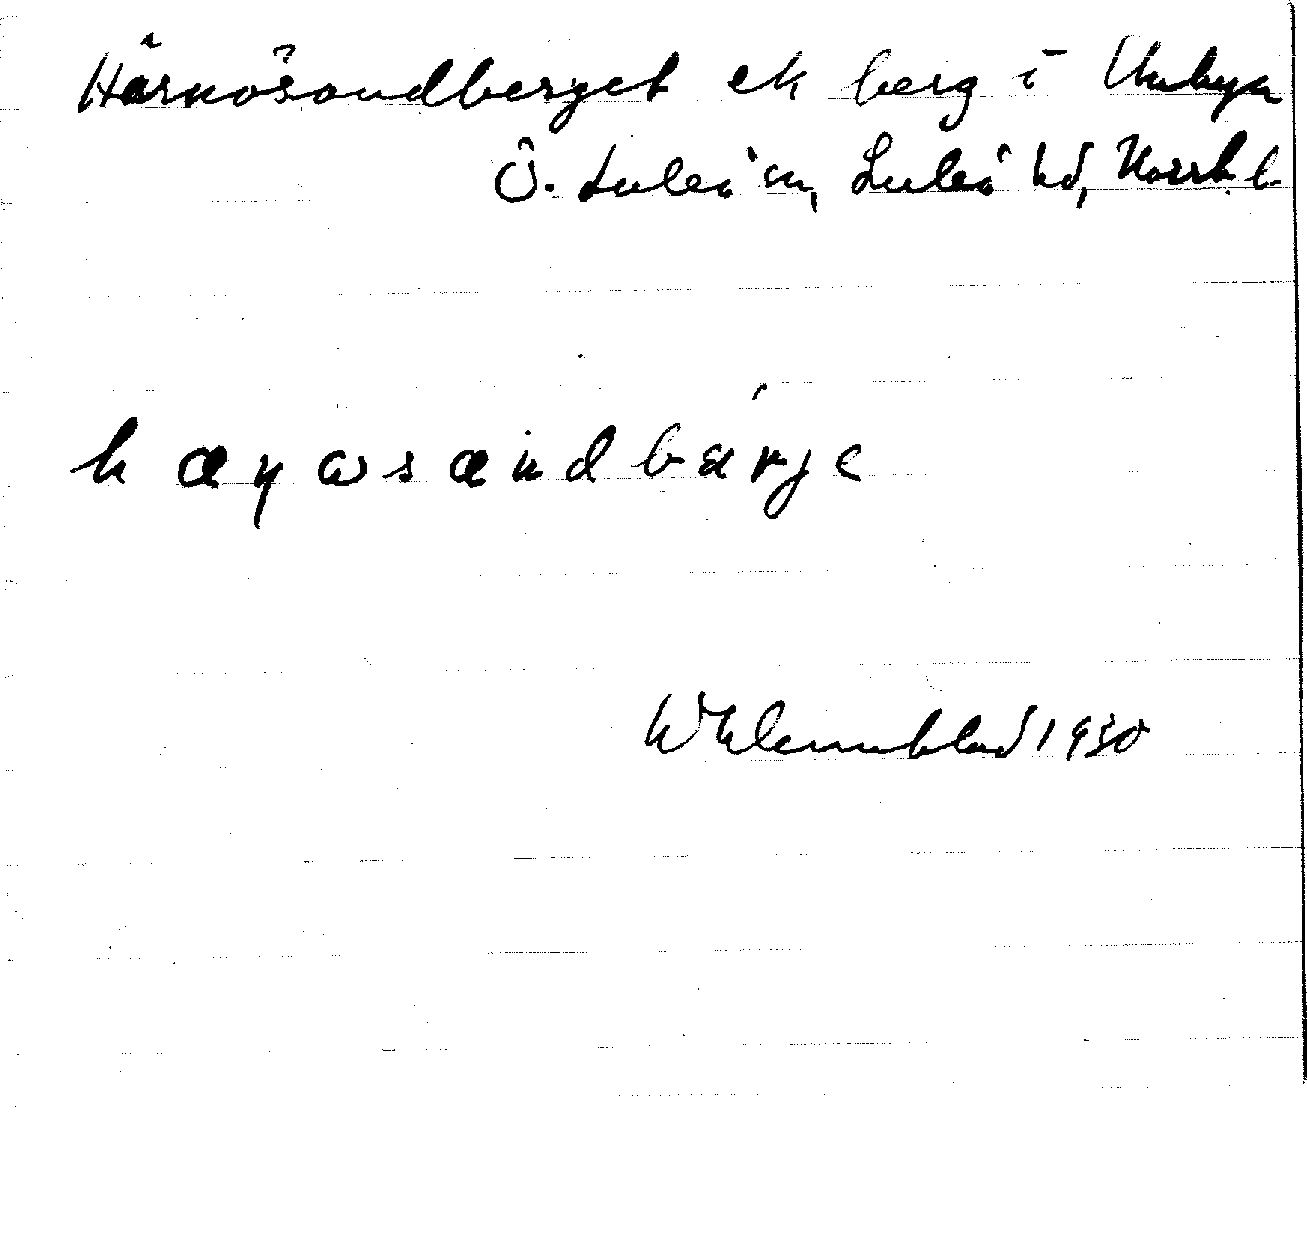 Härnösandberget ett berg i Unbyn
Ö. Luleå sn, Luleå hd, Norrb.
hæŋωsandbärje
W Klemmblad 1930